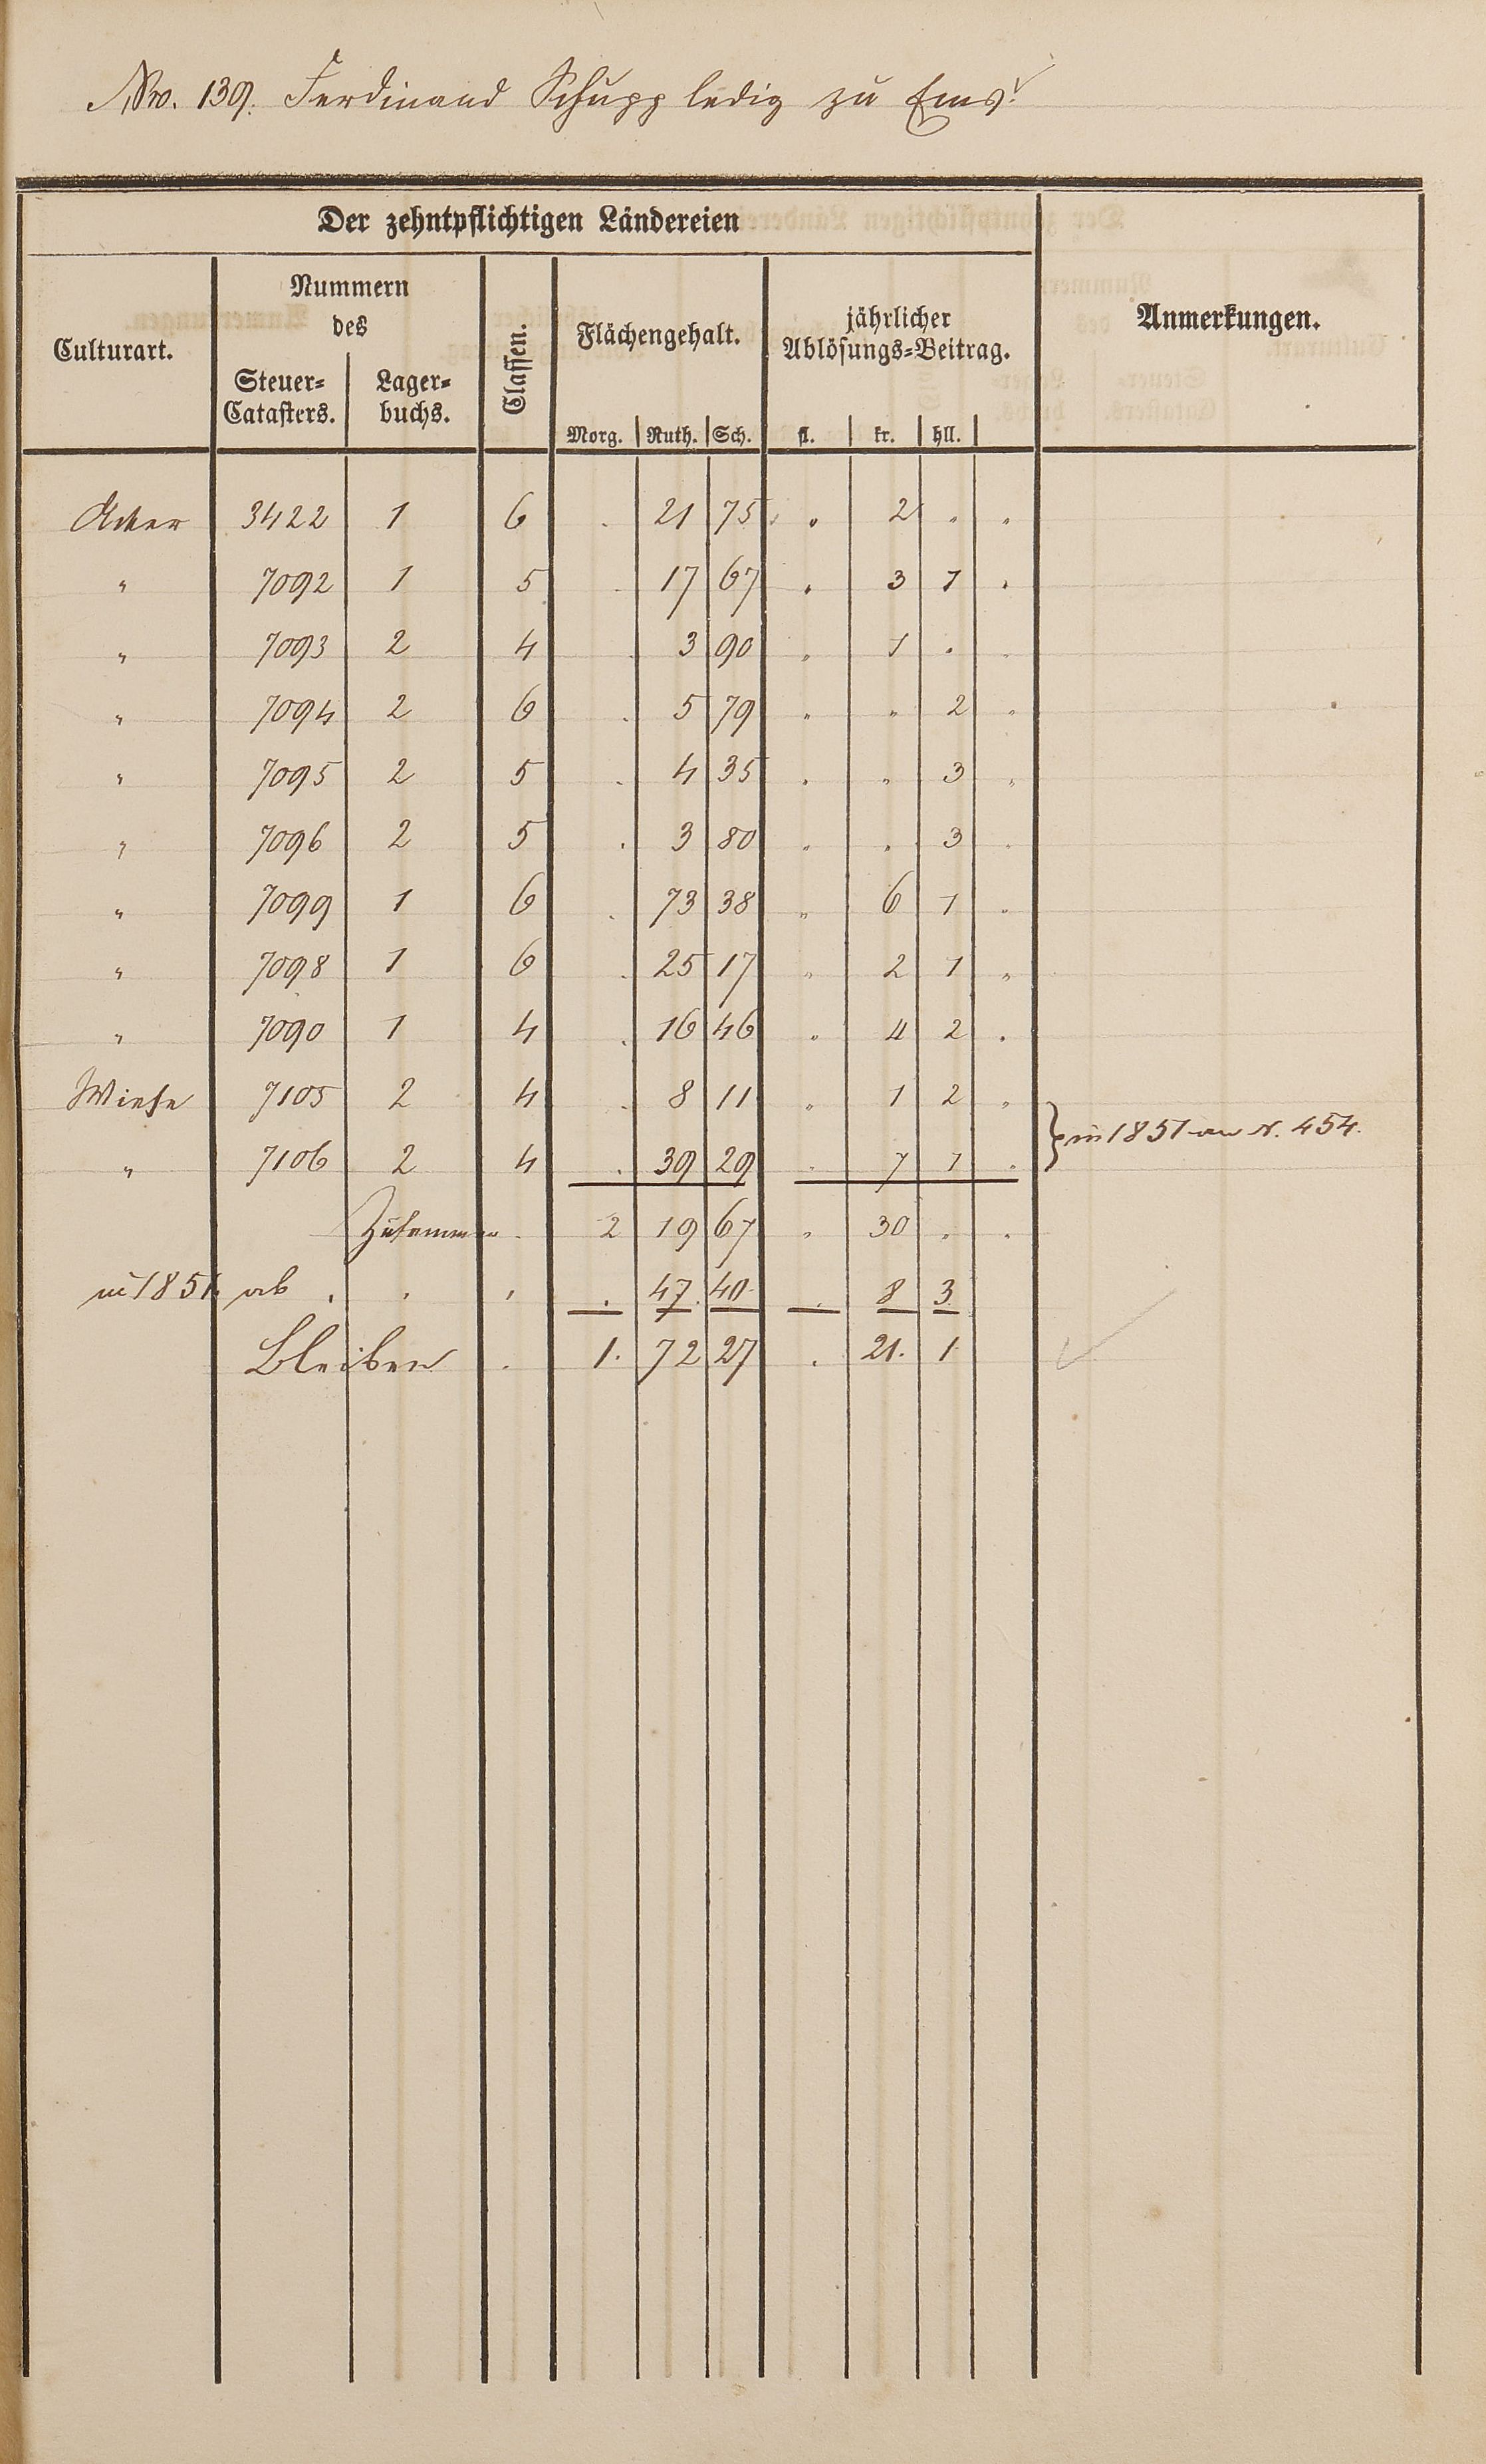 Nro. 139. Ferdinand Schupp ledig zu Ems.
Der zehntpflichtigen Ländereien
Culturart.
Nummern
des
Steuer=
Catasters.
Lager=
buchs.
Classen.
Flächengehalt.
Morg. Ruth. Sch.
jährlicher
Ablösungs=Beitrag.
fl. kr. hll.
Anmerkungen.
Acker 3422 1 6 . 21 75 . 2 . .
" 7092 1 5 . 17 67 . 3 1 .
" 7093 2 4 . 3 90 . 1 . .
" 7094 2 6 . 5 79 . " 2 .
" 7095 2 5 . 4 35 . " 3 .
" 7096 2 5 . 3 80 . . 3 .
" 7099 1 6 . 73 38 . 6 1 .
" 7098 1 6 . 25 17 . 2 1 .
" 7090 1 4 . 16 46 . 4 2 .
Wiese 7105 2 4 . 8 11 . 1 2 .
" 7106 2 4 . 39 29 . 7 1 .
} in 1851 an N. 454.
Zusammen . 2 19 67 . 30 . .
in 1851 ab . . . . 47. 40 . 8 3
Bleiben . 1. 72 27 . 21. 1